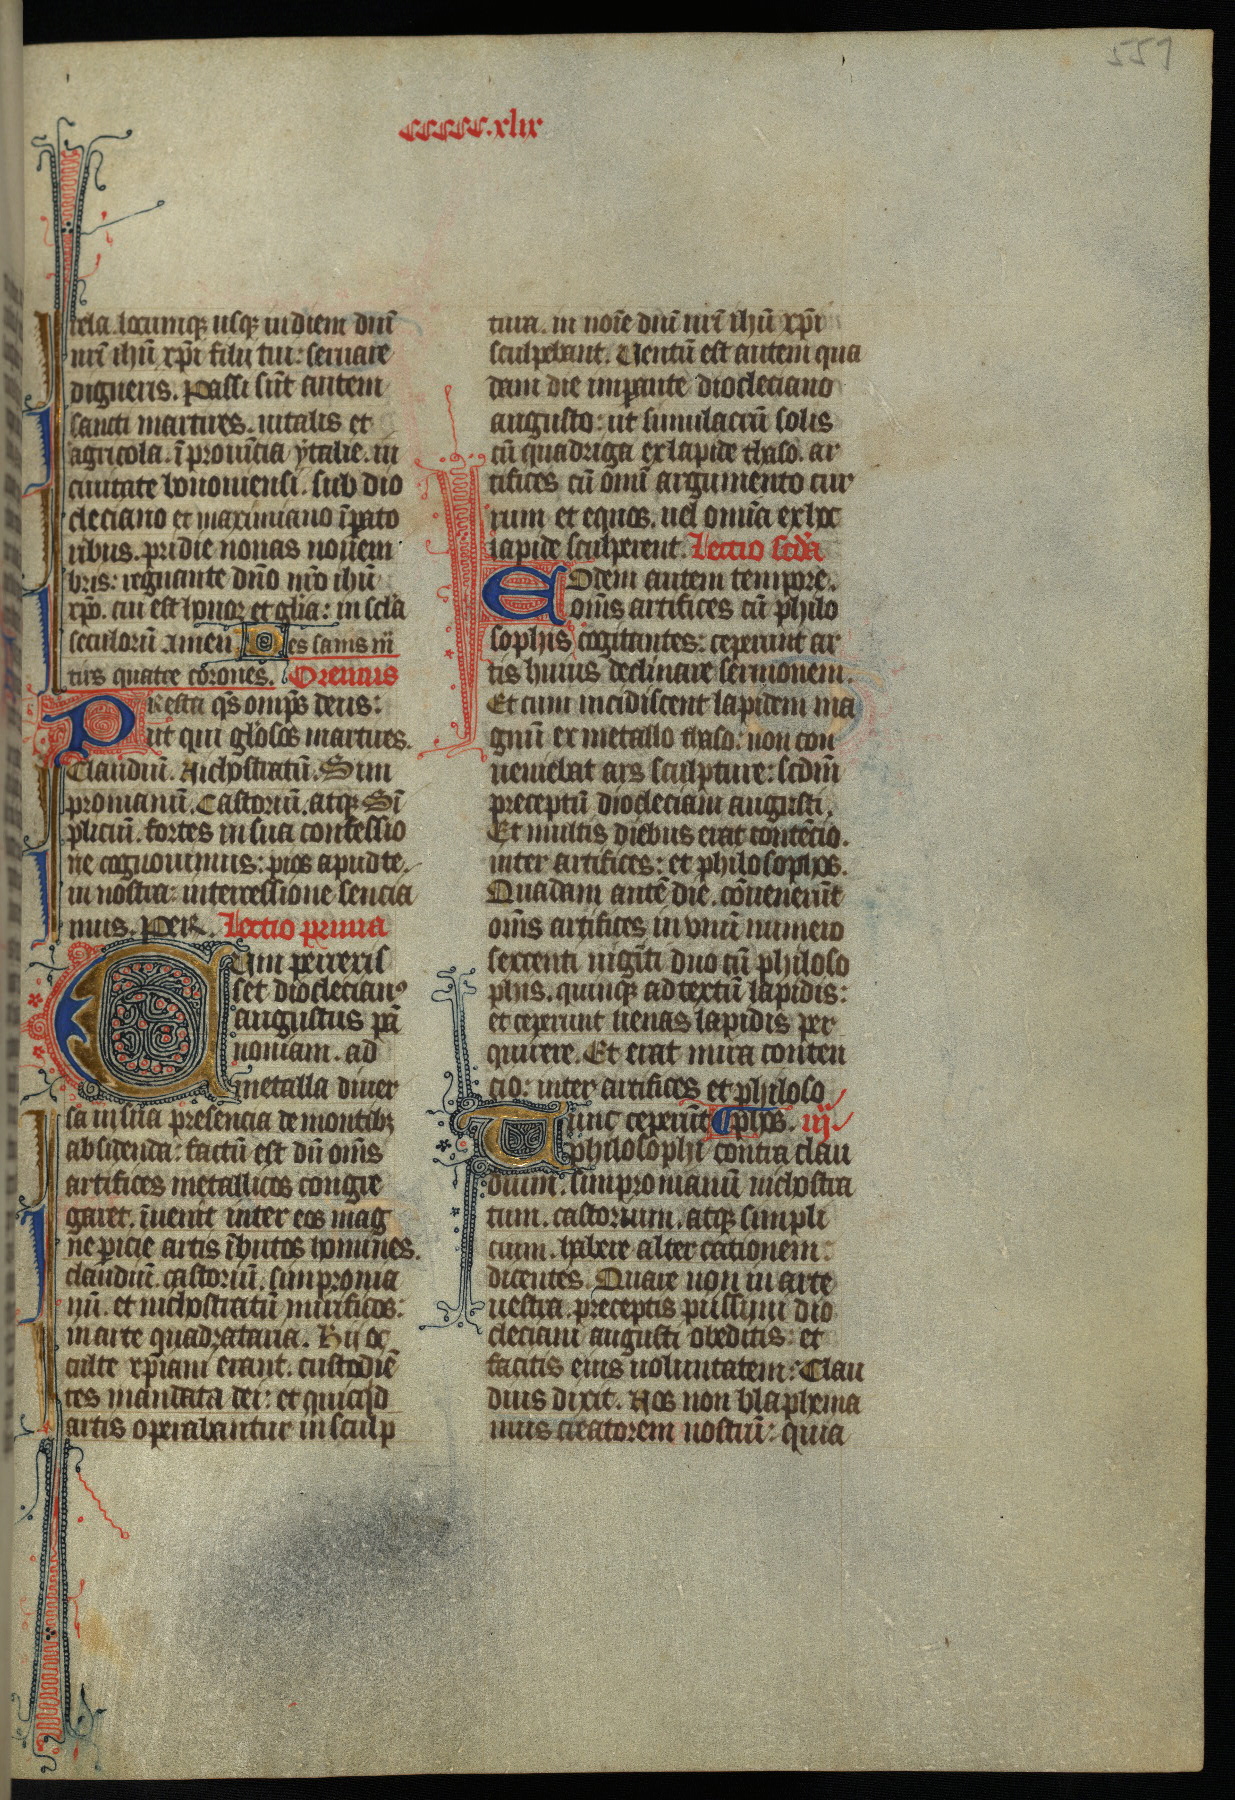 551
ccccc.xlix
tela. locumq; usq; in diem dn̄i
nr̄i ih̄u xp̄i filii tui: seruare
digneris. Passi sūt autem
sancti martires. uitalis et
agricola. ī prouīcia ytalie. in
ciuitate bononiensi. sub dio
cleciano et maximiano īpato
ribus. pridie nonas nouem
bris: regnante dn̄o nr̄o ih̄u
xp̄o. cui est honor et gl̄ia: in sc̄la
seculorū amen Des sains m̄
tirs quatre corones. Oremus
Presta qs̄ omp̄s deus:
ut qui gl̄osos martires.
Claudiū. Nichostratū. Sim
promanū. Castoriū. atq; Sī
pliciū. fortes in sua confessio
ne cognouimus: pios apud te.
in nostra: intercessione sencia
mus. Per. Lectio prima
Cum perrexis
set dioclecianꝰ
augustus pā
noniam. ad
metalla diuer
sa in sua presencia de montibꝫ
abscidenda: factū est dū om̄s
artifices metallicos congre
garet. īuenit inter eos mag
ne picie artis ībutos homines.
claudiū. castoriū. simpronia
nū. et nichostratū mirificos:
in arte quadrataria. Hii oc
culte xp̄iani erant. custodiē
tes mandata dei: et quicqd
artis operabantur in sculp
tura. in noīe dn̄i nr̄i ih̄u xp̄i
sculpebant. Uentū est autem qua
dam die imp̱ante diocleciano
augusto: ut simulacrū solis
cū quadriga ex lapide thaso. ar
tifices cū omī argumento cur
rum et equos. uel omīa ex hoc
lapide sculperent. Lectio scd̄a
Eodem autem tempore.
om̄s artifices cū philo
sophis cogitantes: ceperunt ar
tis huius declinare sermonem.
Et cum incidiscent lapidem ma
gnū ex metallo thaso: non con
ueniebat ars sculpture: scdm̄
preceptū diocleciani augusti.
Et multis diebus erat contēcio.
inter artifices: et philosophos.
Quadam autē die. cōuenerūt
om̄s artifices in vnū numero
sexcenti uigīti duo cū philoso
phis. quinq; ad textū lapidis:
et ceperunt uenas lapidis per
quirere. Et erat mira conten
cio: inter artifices et philoso
Tunc ceperūt phos. iij
philosophi contra clau
dium. simpromanū nichostra
tum. castorium. atq; simpli
cium. habere altercationem:
dicentes. Quare non in arte
uestra. preceptis piissimi dio
cleciani augusti obeditis: et
facitis eius uoluntatem: Clau
dius dixit. Nos non blasphema
mus creatorem nostrū: quia